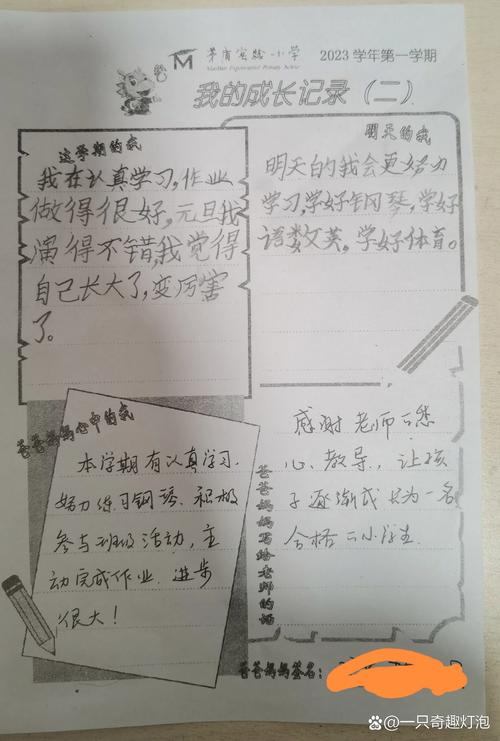 茅盾实验小学
MaoDun Experimental Primary School
2023 学年第一学期
我的成长记录（二）
这学期的我
我在认真学习,作业
做得很好,元旦我
演得不错,我觉得
自己长大了,变厉害
了。
明天的我
明天的我会更努力
学习,学好钢琴,学好
语数文英。学好体育。
爸爸妈妈心中的我
本学期有认真学习.
努力练习钢琴、积极
参与班级活动,主
动完成作业.进步
很大!
爸爸妈妈写给老师的话
感谢老师的悉
心、教导,让孩
子逐渐成长为一名
合格的小学生.
爸爸妈妈签名:
百家号@一只奇趣灯泡